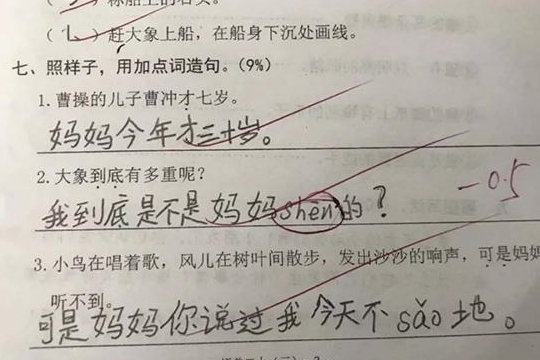 赶大象上船，在船身下沉处画线。
七、照样子，用加点词造句。（9%）
1. 曹操的儿子曹冲才七岁。
妈妈今年才三十岁。
2. 大象到底有多重呢？
我到底是不是妈妈shēn的？
-0.5
3. 小鸟在唱着歌，风儿在树叶间散步，发出沙沙的响声，可是妈妈
听不到。
可是妈妈你说过我今天不sǎo地。